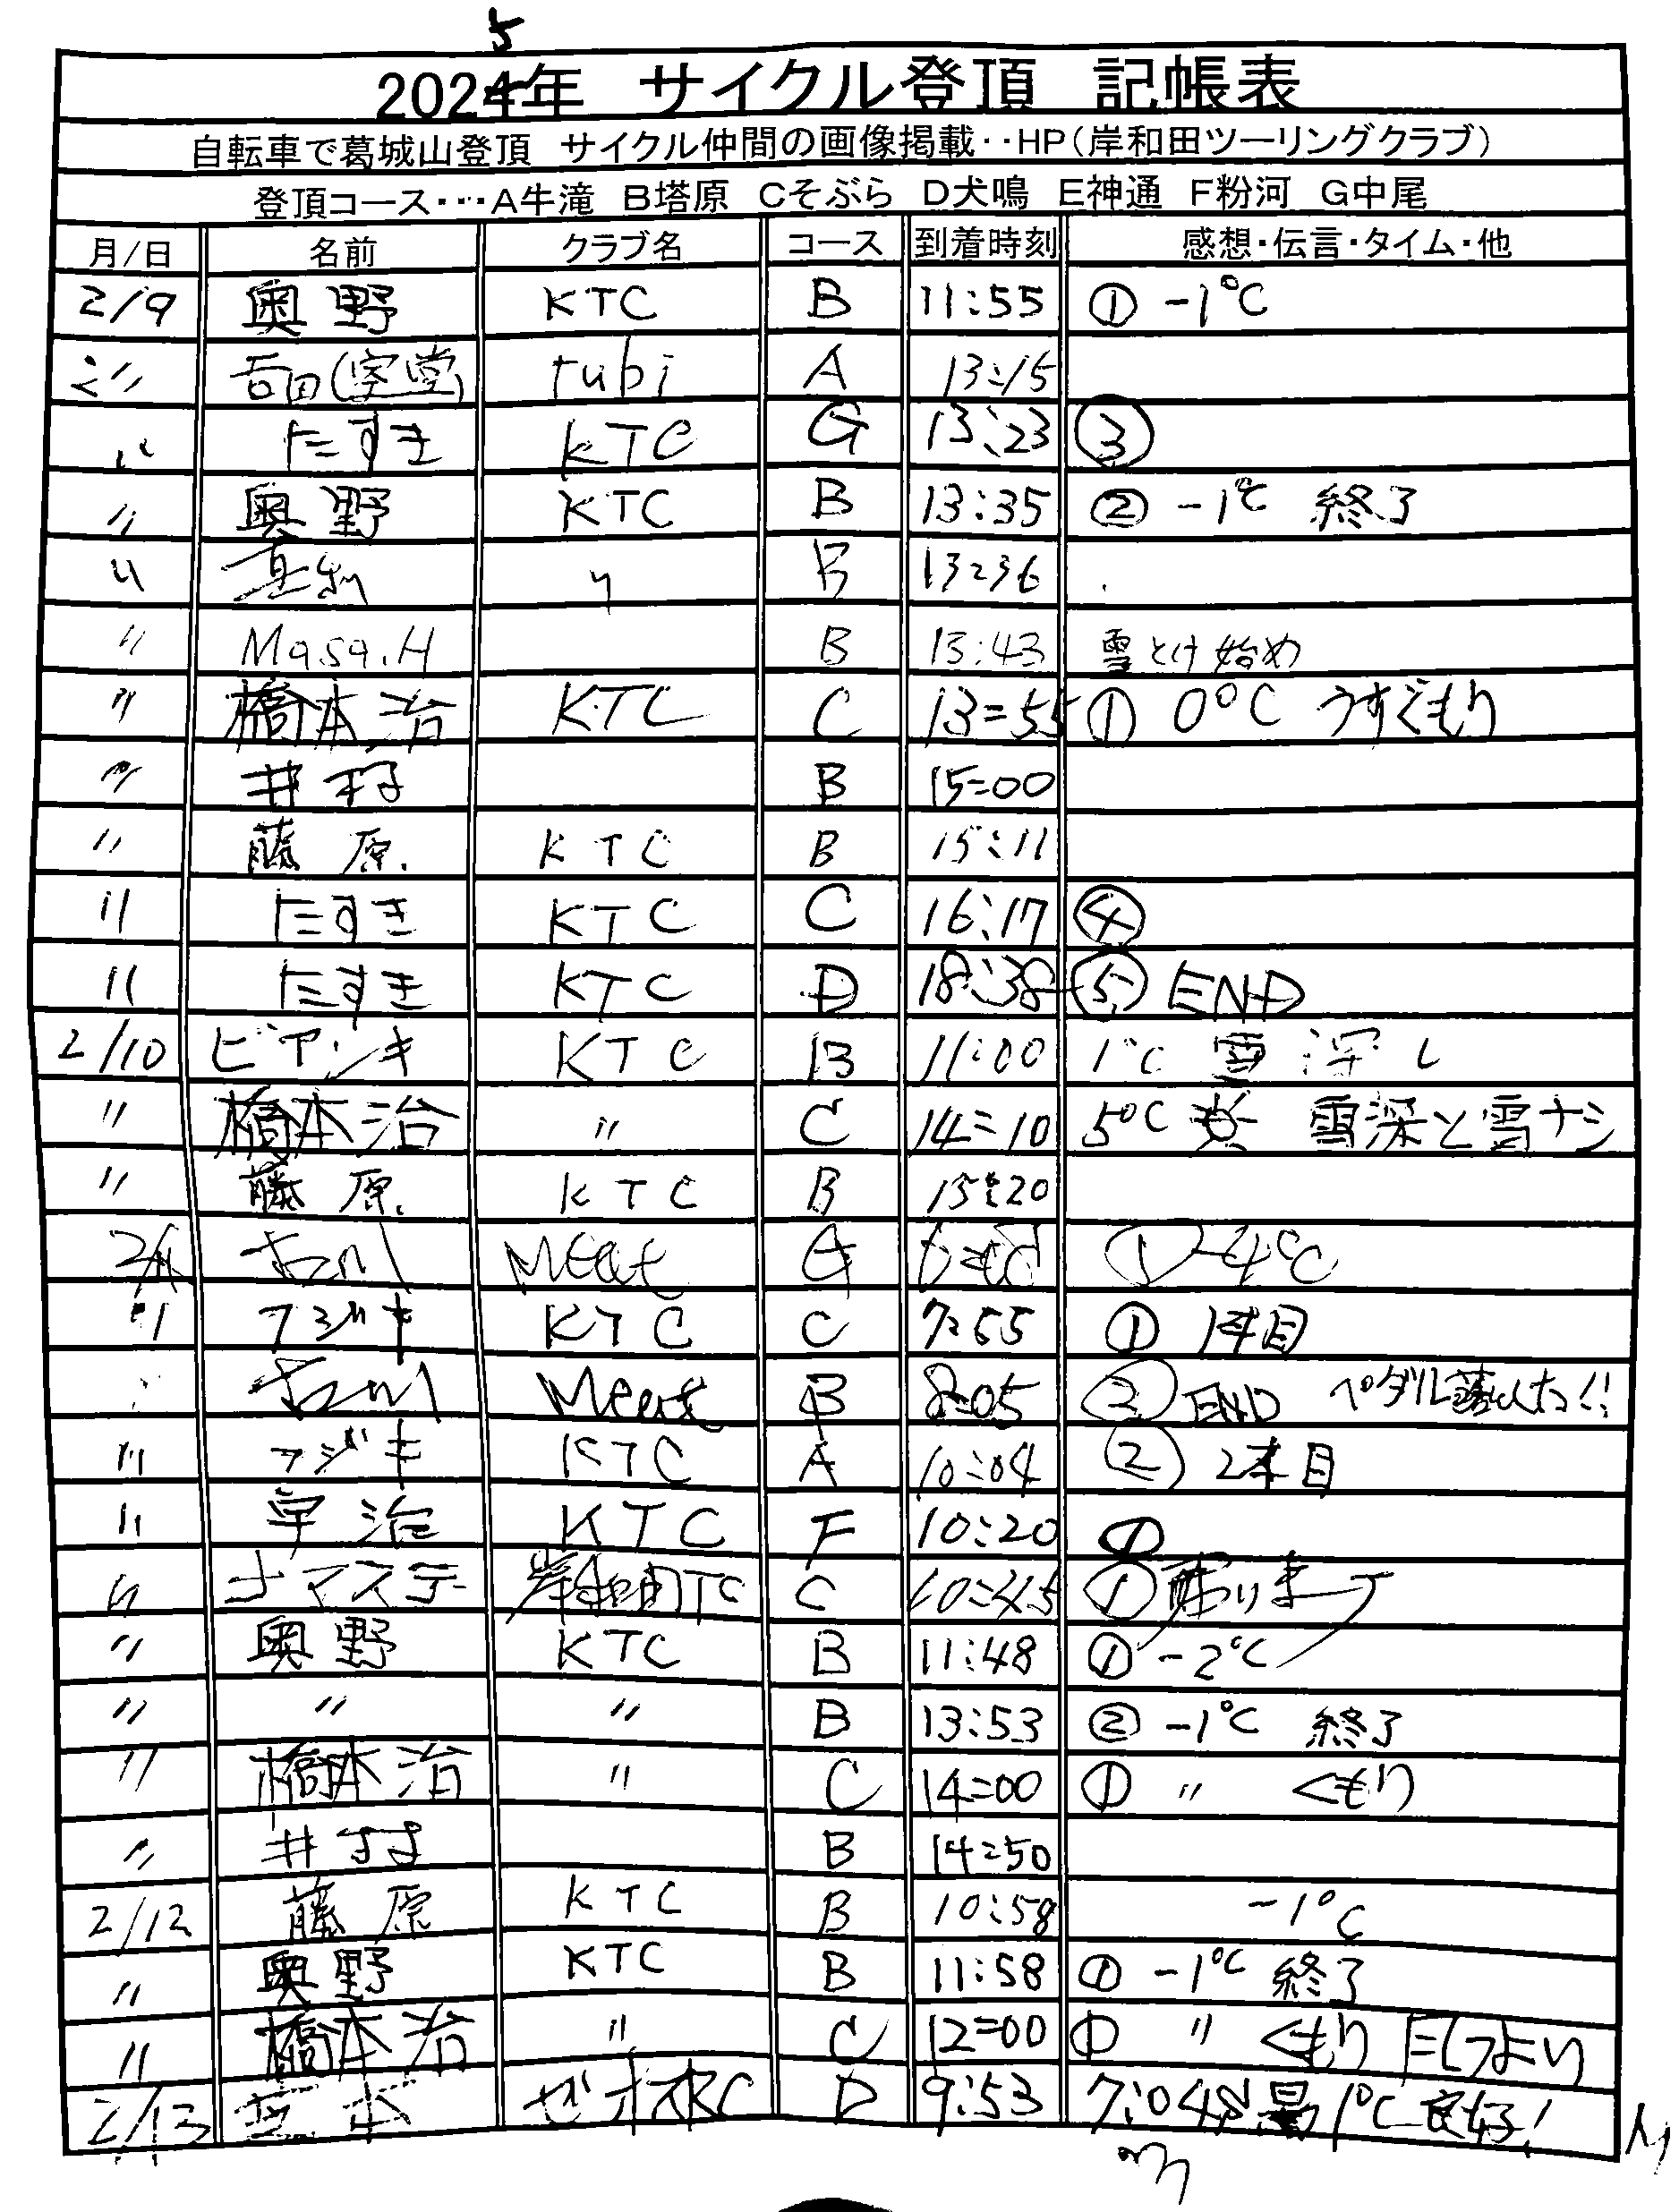 5
2024年 サイクル登頂 記帳表
自転車で葛城山登頂 サイクル仲間の画像掲載‥HP(岸和田ツーリングクラブ)
登頂コース・・・A牛滝 B塔原 Cそぶら D犬鳴 E神通 F粉河 G中尾
月/日 名前 クラブ名 コース 到着時刻 感想・伝言・タイム・他
2/9 奥野 KTC B 11:55 ① -1℃
〃 吉田(客堂) tubi A 13:15
〃 たすき KTC G 13:23 ③
〃 奥野 KTC B 13:35 ② -1℃ 終了
〃 〃 B 13:36
〃 Masa.H B 13:43 雪とけ始め
〃 橋本治 KTC C 13=55 ① 0℃ うすぐもり
〃 井村 B 15=00
〃 藤原 KTC B 15:11
〃 たすき KTC C 16:17 ④
〃 たすき KTC D 18:38 ⑤ END
2/10 ビアンキ KTC B 11:00 1℃ 雪深し
〃 橋本治 〃 C 14=10 5℃ 雪深と雪ナシ
〃 藤原 KTC B 15:20
2/11 Meat ① -4℃
〃 フジキ KTC C 7:55 ① 1本目
Meat B 8:05 ② END ペダル落した!!
〃 フジキ KTC A 10:04 ② 2本目
〃 宇治 KTC F 10:20 ①
〃 ナマステ 岸和田TC C 10:45 ①
〃 奥野 KTC B 11:48 ① -2℃
〃 〃 〃 B 13:53 ② -1℃ 終了
〃 橋本治 〃 C 14=00 ① 〃 くもり
〃 井村 B 14=50
2/12 藤原 KTC B 10:58 -1℃
〃 奥野 KTC B 11:58 ① -1℃ 終了
〃 橋本治 〃 C 12=00 ① 〃 くもり 風つよい
2/13 D 9:53 1℃ 良好!